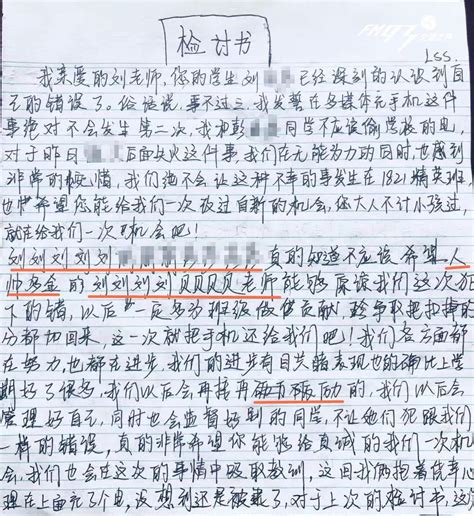 检讨书
LSS.
我亲爱的刘老师,你的学生刘 已经深刻的认识到自
己的错误了。俗话说,事不过三,我发誓在多媒体充手机这件
事绝对不会发生第二次,我和彭 同学不应该偷学校的电,
对于昨日 后面失火这件事,我们在无能为力同时,也感到
非常的惋惜,我们绝不会让这种不幸的事发生在1821精英班
也希望您能给我们一次改过自新的机会,您大人不计小孩过,
就在给我们一次机会吧!
刘刘刘刘 真的知道不应该,希望人
帅多金的刘刘刘刘贝贝贝贝老师能够原谅我们这次犯
下的错,以后一定多为班级做出贡献,致争取把扣掉的
分都加回来,这一次就把手机还给我们吧!我们各方面都
在努力,也都在进步,我们的进步有目共睹表现也的确比上学
期好了很多,我们以后会再接再 励的,我们以后会
管理好自己,同时也会监督好别的同学,不让他们犯跟我们
一样的错误,真的非常希望你能够给真诚的我们一次机
会,我们也会在这次的事情中吸取教训,这回我俩抱着侥幸心
理在上面充了个电,没想到还是被 了,对于上次的检讨书,这次